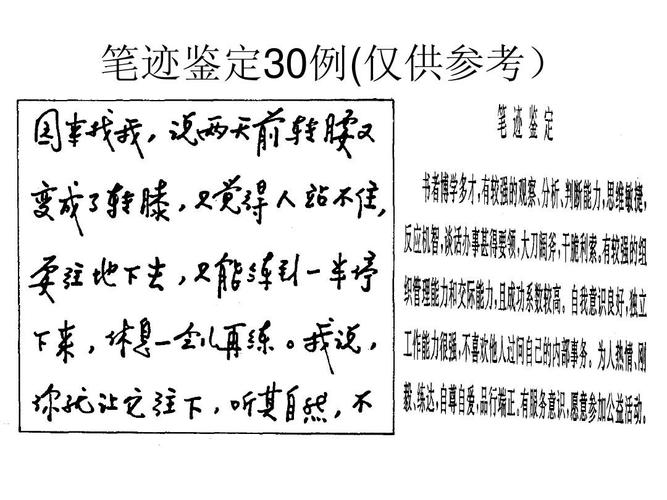 笔迹鉴定30例(仅供参考）
因事找我，说两天前转腰又
变成了转膝，只觉得人站不住，
要往地下去，只能练到一半停
下来，休息一会儿再练。我说，
你就让它往下，听其自然，不
笔迹鉴定
书者博学多才，有较强的观察、分析、判断能力，思维敏捷，
反应机智，谈话办事甚得要领，大刀阔斧，干脆利索。有较强的组
织管理能力和交际能力，且成功系数较高。自我意识良好，独立
工作能力很强，不喜欢他人过问自己的内部事务。为人热情、刚
毅、练达，自尊自爱，品行端正。有服务意识，愿意参加公益活动。